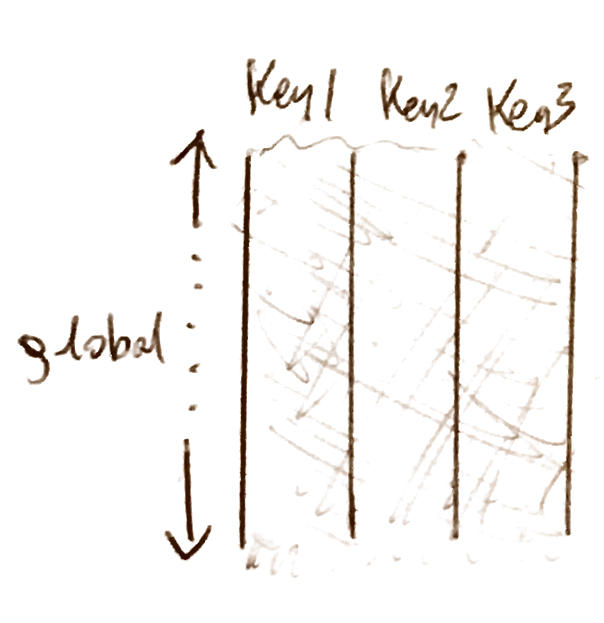 Key1 Key2 Key3
global